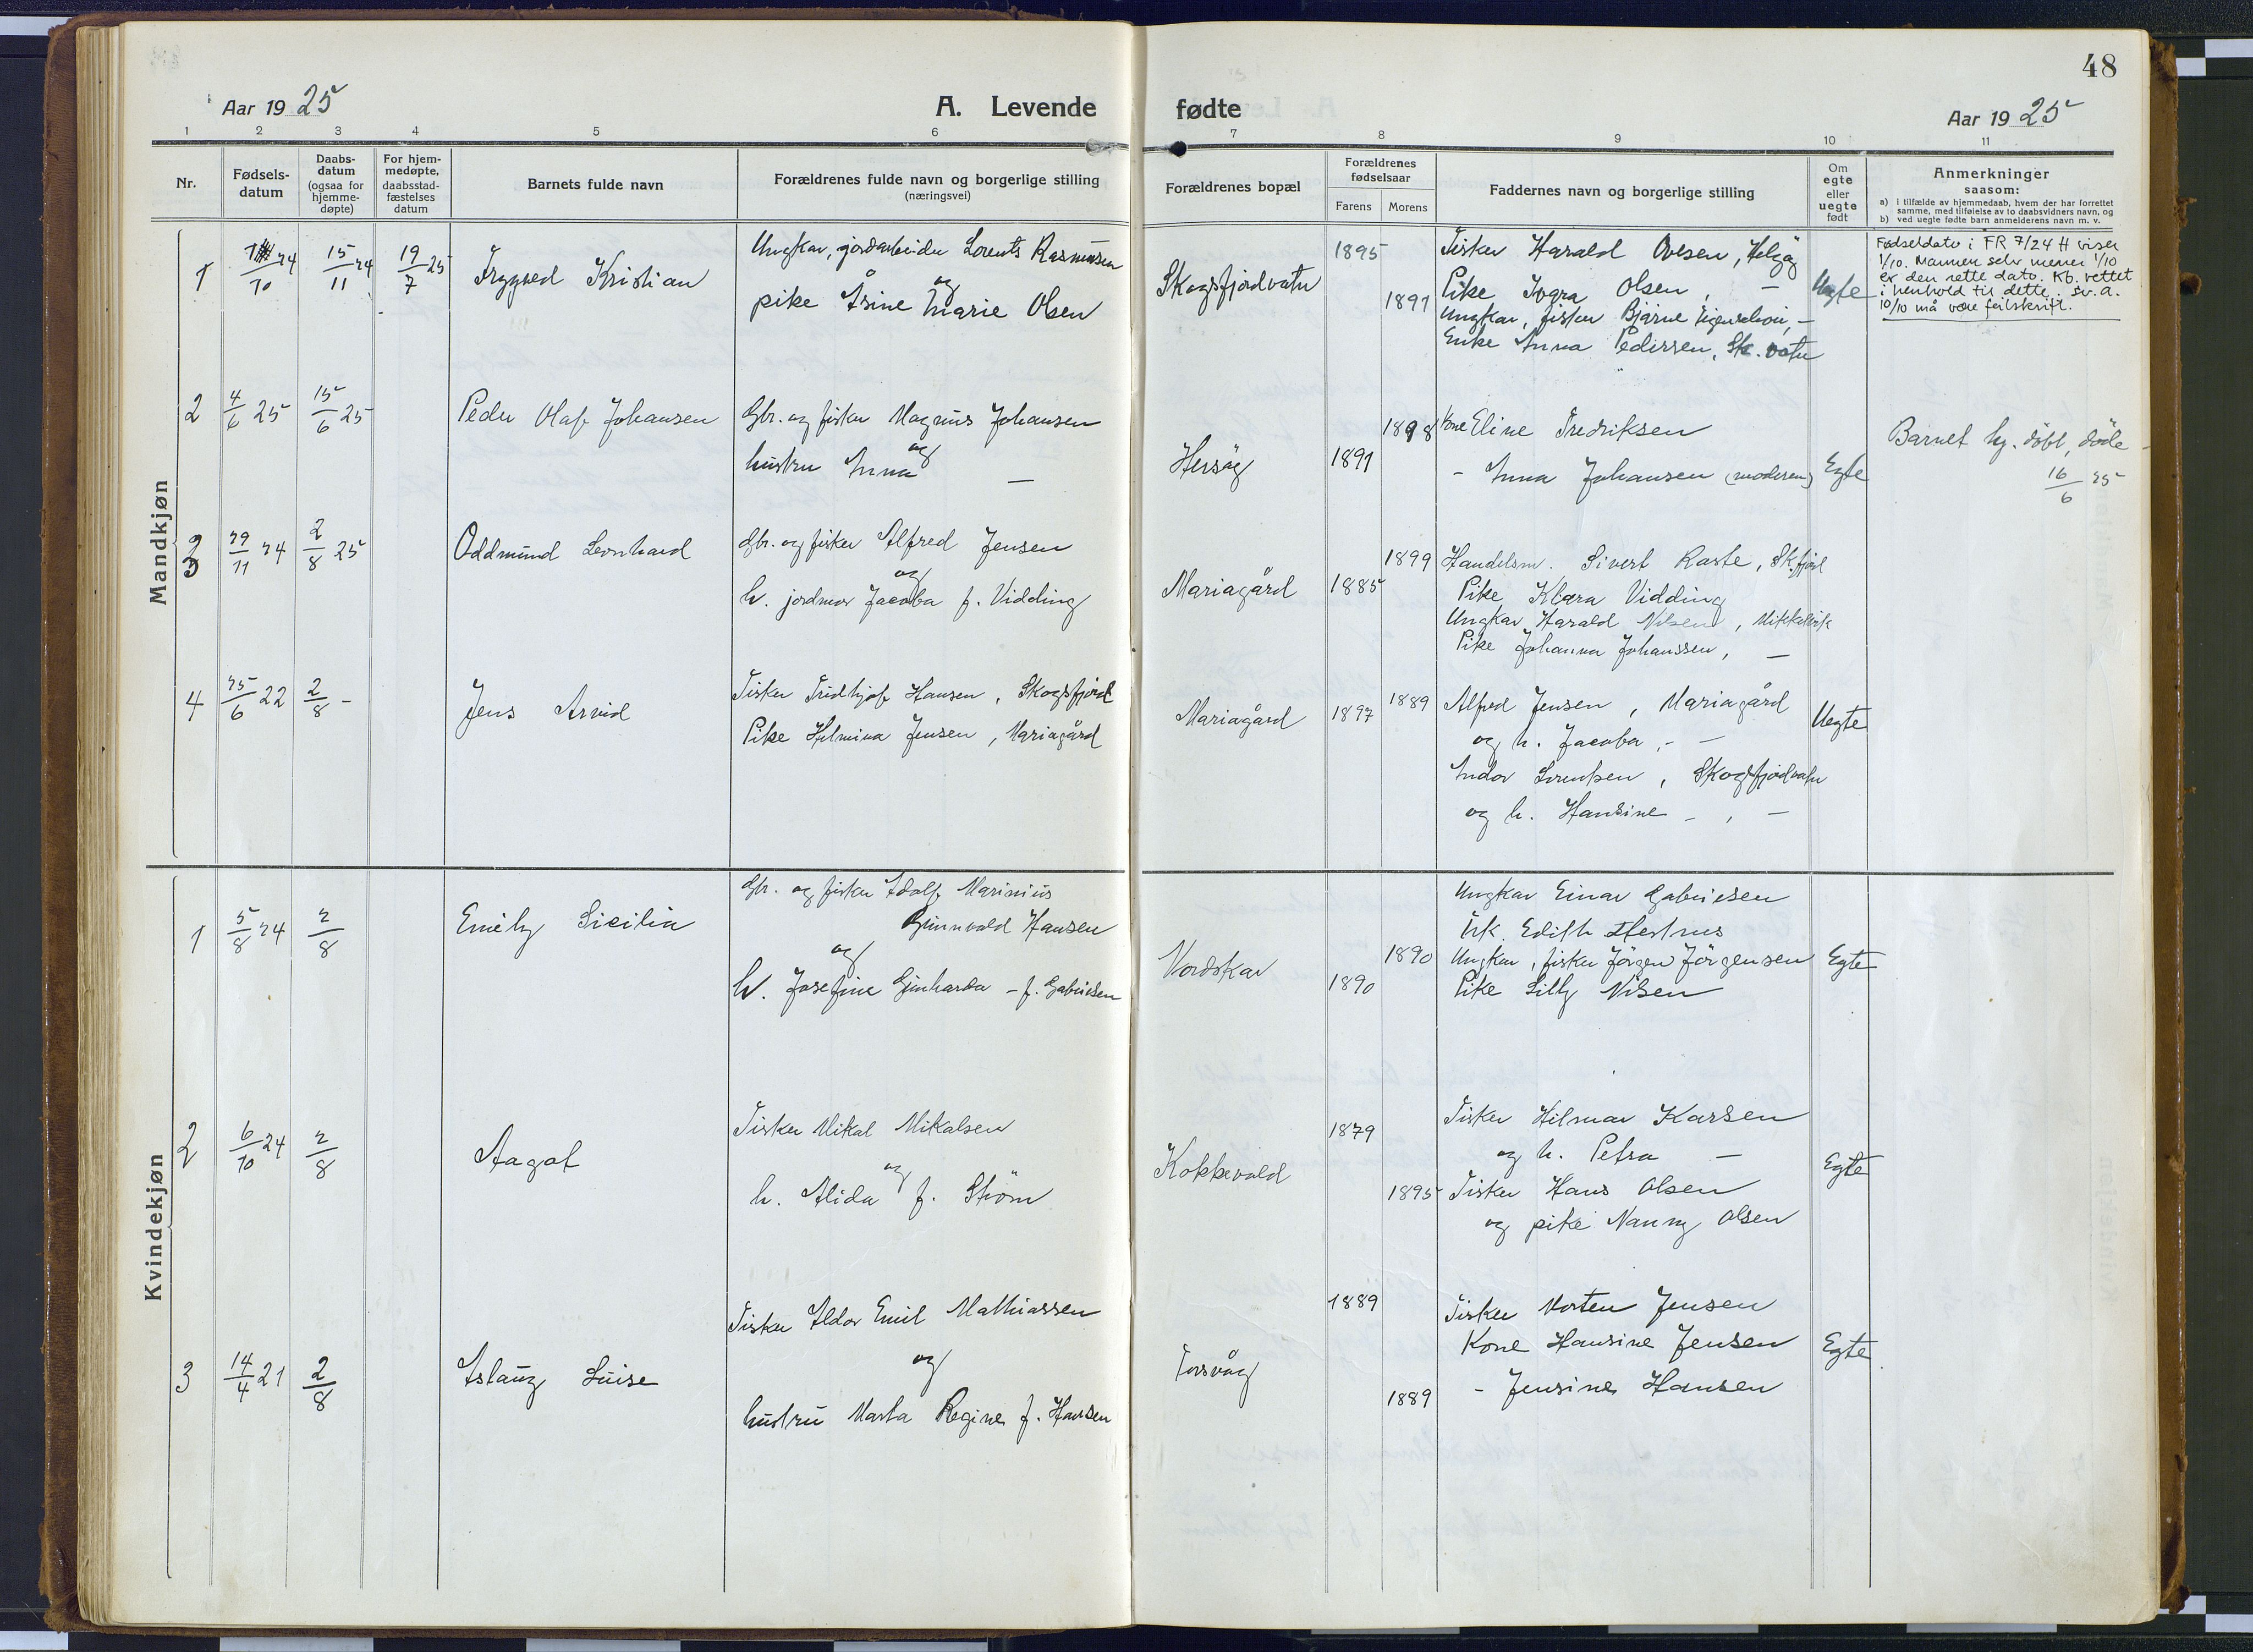 48
Aar 1925
A. Levende
fødte
Aar 1925
1 2 3 4 5 6 7 8 9 10 11
Nr.
Fødsels-
datum
Daabs-
datum
(ogsaa for
hjemme-
døpte)
For hjem-
medøpte,
daabsstad-
fæstelses
datum
Barnets fulde navn
Forældrenes fulde navn og borgerlige stilling
(næringsvei)
Forældrenes bopæl
Forældrenes
fødselsaar
Farens Morens
Faddernes navn og borgerlige stilling
Om
egte
eller
uegte
født
Anmerkninger
saasom:
a) i tilfælde av hjemmedaab, hvem der har forrettet
samme, med tilføielse av to daabsvidners navn, og
b) ved uegte fødte barn anmelderens navn m. v.
Mandkjøn
1
/10 24
15/11 24
19/7 25
Tryggved Kristian
Ungkar, jordarbeider Lorents Rasmussen
og
pike Åsine Marie Olsen
Skogsfjordvatn
1895
1891
Fisker Harald Ovesen, Helgøy
Pike Ingra Olsen, —
Ungkar, fisker Bjarne —
Enke Anna Pedersen, Sk. vatn
Uegte
Fødseldato i FR 7/24 H viser
1/10. Mannen selv mener 1/10
er den rette dato. Kb. rettet
i henhold til dette. sv.a.
10/10 må være feilskrift.
2
4/6 25
15/6 25
Peder Olaf Johansen
Gbr. og fisker Magnus Johansen
og
hustru Anna —
Hersøy
1891
1898
Kone Eline Fredriksen
- Anna Johansen (moderen)
Egte
Barnet hj. döbt, döde
16/6 25
3
29/11 24
2/8 25
Oddmund Leonhard
Gbr. og fisker Alfred Jensen
og
h. jordmor Jacoba f. Vidding
Mariagård
1885
1899
Handelsm. Sivert Raste, Sk.fjord
Pike Klara Vidding
Ungkar Harald Nilsen, Mikkelvik
Pike Johanna Johanssen, —
4
25/6 22
2/8 -
Jens Arvid
Fisker Fridhjof Hansen, Skogsfjord
Pike Helmina Jensen, Mariagård
Mariagård
1897
1889
Alfred Jensen, Mariagård
og h. Jacoba, - —
Andor Lorentsen, Skogsfjordvatn
og h. Hansine - , —
Uegte
Kvindekjøn
1
5/8 24
2/8
Emely Sicilia
Gbr. og fisker Adolf Marinius
Gunnvald Hansen
og
h. Josefine Ginharda - f. Gabrielsen
Nordskar
1890
1890
Ungkar Einar Gabrielsen
Frk. Edith Hestnes
Ungkar, fisker Jörgen Jörgensen
Pike Lilly Nilsen
Egte
2
6/10 24
2/8
Aagot
Fisker Mikal Mikalsen
og
h. Alida f. Ström
Kokkevold
1879
1895
Fisker Hilmar Karsen
og h. Petra —
Fisker Hans Olsen
og pike Nanny Olsen
Egte
3
14/4 21
2/8
Aslaug Luise
Fisker Aldor Emil Mathiassen
og
hustru Marta Regine f. Hansen
Torsvåg
1889
1889
Fisker Morten Jensen
Kone Hansine Jensen
- Jensine Hansen
Egte